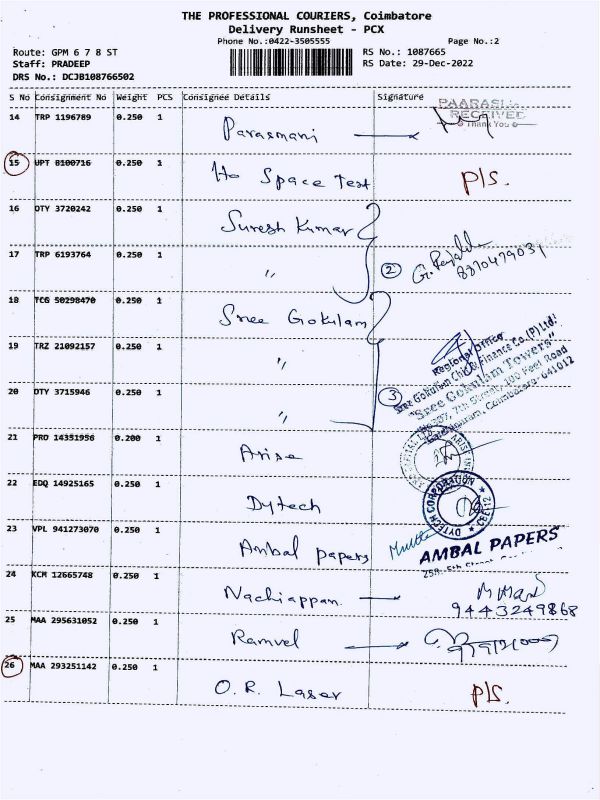 THE PROFESSIONAL COURIERS, Coimbatore
Delivery Runsheet - PCX
Phone No.:0422-3505555 Page No.:2
Route: GPM 6 7 8 ST RS No.: 1087665
Staff: PRADEEP RS Date: 29-Dec-2022
DRS No.: DCJB108766502
S No Consignment No Weight PCS Consignee Details Signature
14 TRP 1196789 0.250 1 Parasmani
PAARASM
RECEIVED
Thank You
15 UPT 8100716 0.250 1 Space Test P/S.
16 OTY 3720242 0.250 1 Suresh Kumar
17 TRP 6193764 0.250 1 〃 2 8870479031
18 TCG 50298470 0.250 1 Sree Gokulam
19 TRZ 21092157 0.250 1 〃
Regional Office
Sree Gokulam Chit & Finance Co.(P) Ltd.
"Sree Gokulam Towers"
7th Street, 100 Feet Road
Coimbatore-641012
20 OTY 3715946 0.250 1 〃 3
21 PRO 14351956 0.200 1 Arise
22 EDQ 14925165 0.250 1 Dytech
DYTECH CORPORATION
23 VPL 941273070 0.250 1 Ambal papers
AMBAL PAPERS
24 KCM 12665748 0.250 1 Nachiappan
9443249868
25 MAA 295631052 0.250 1 Ramvel
26 MAA 293251142 0.250 1 O.R. Laser P/S.